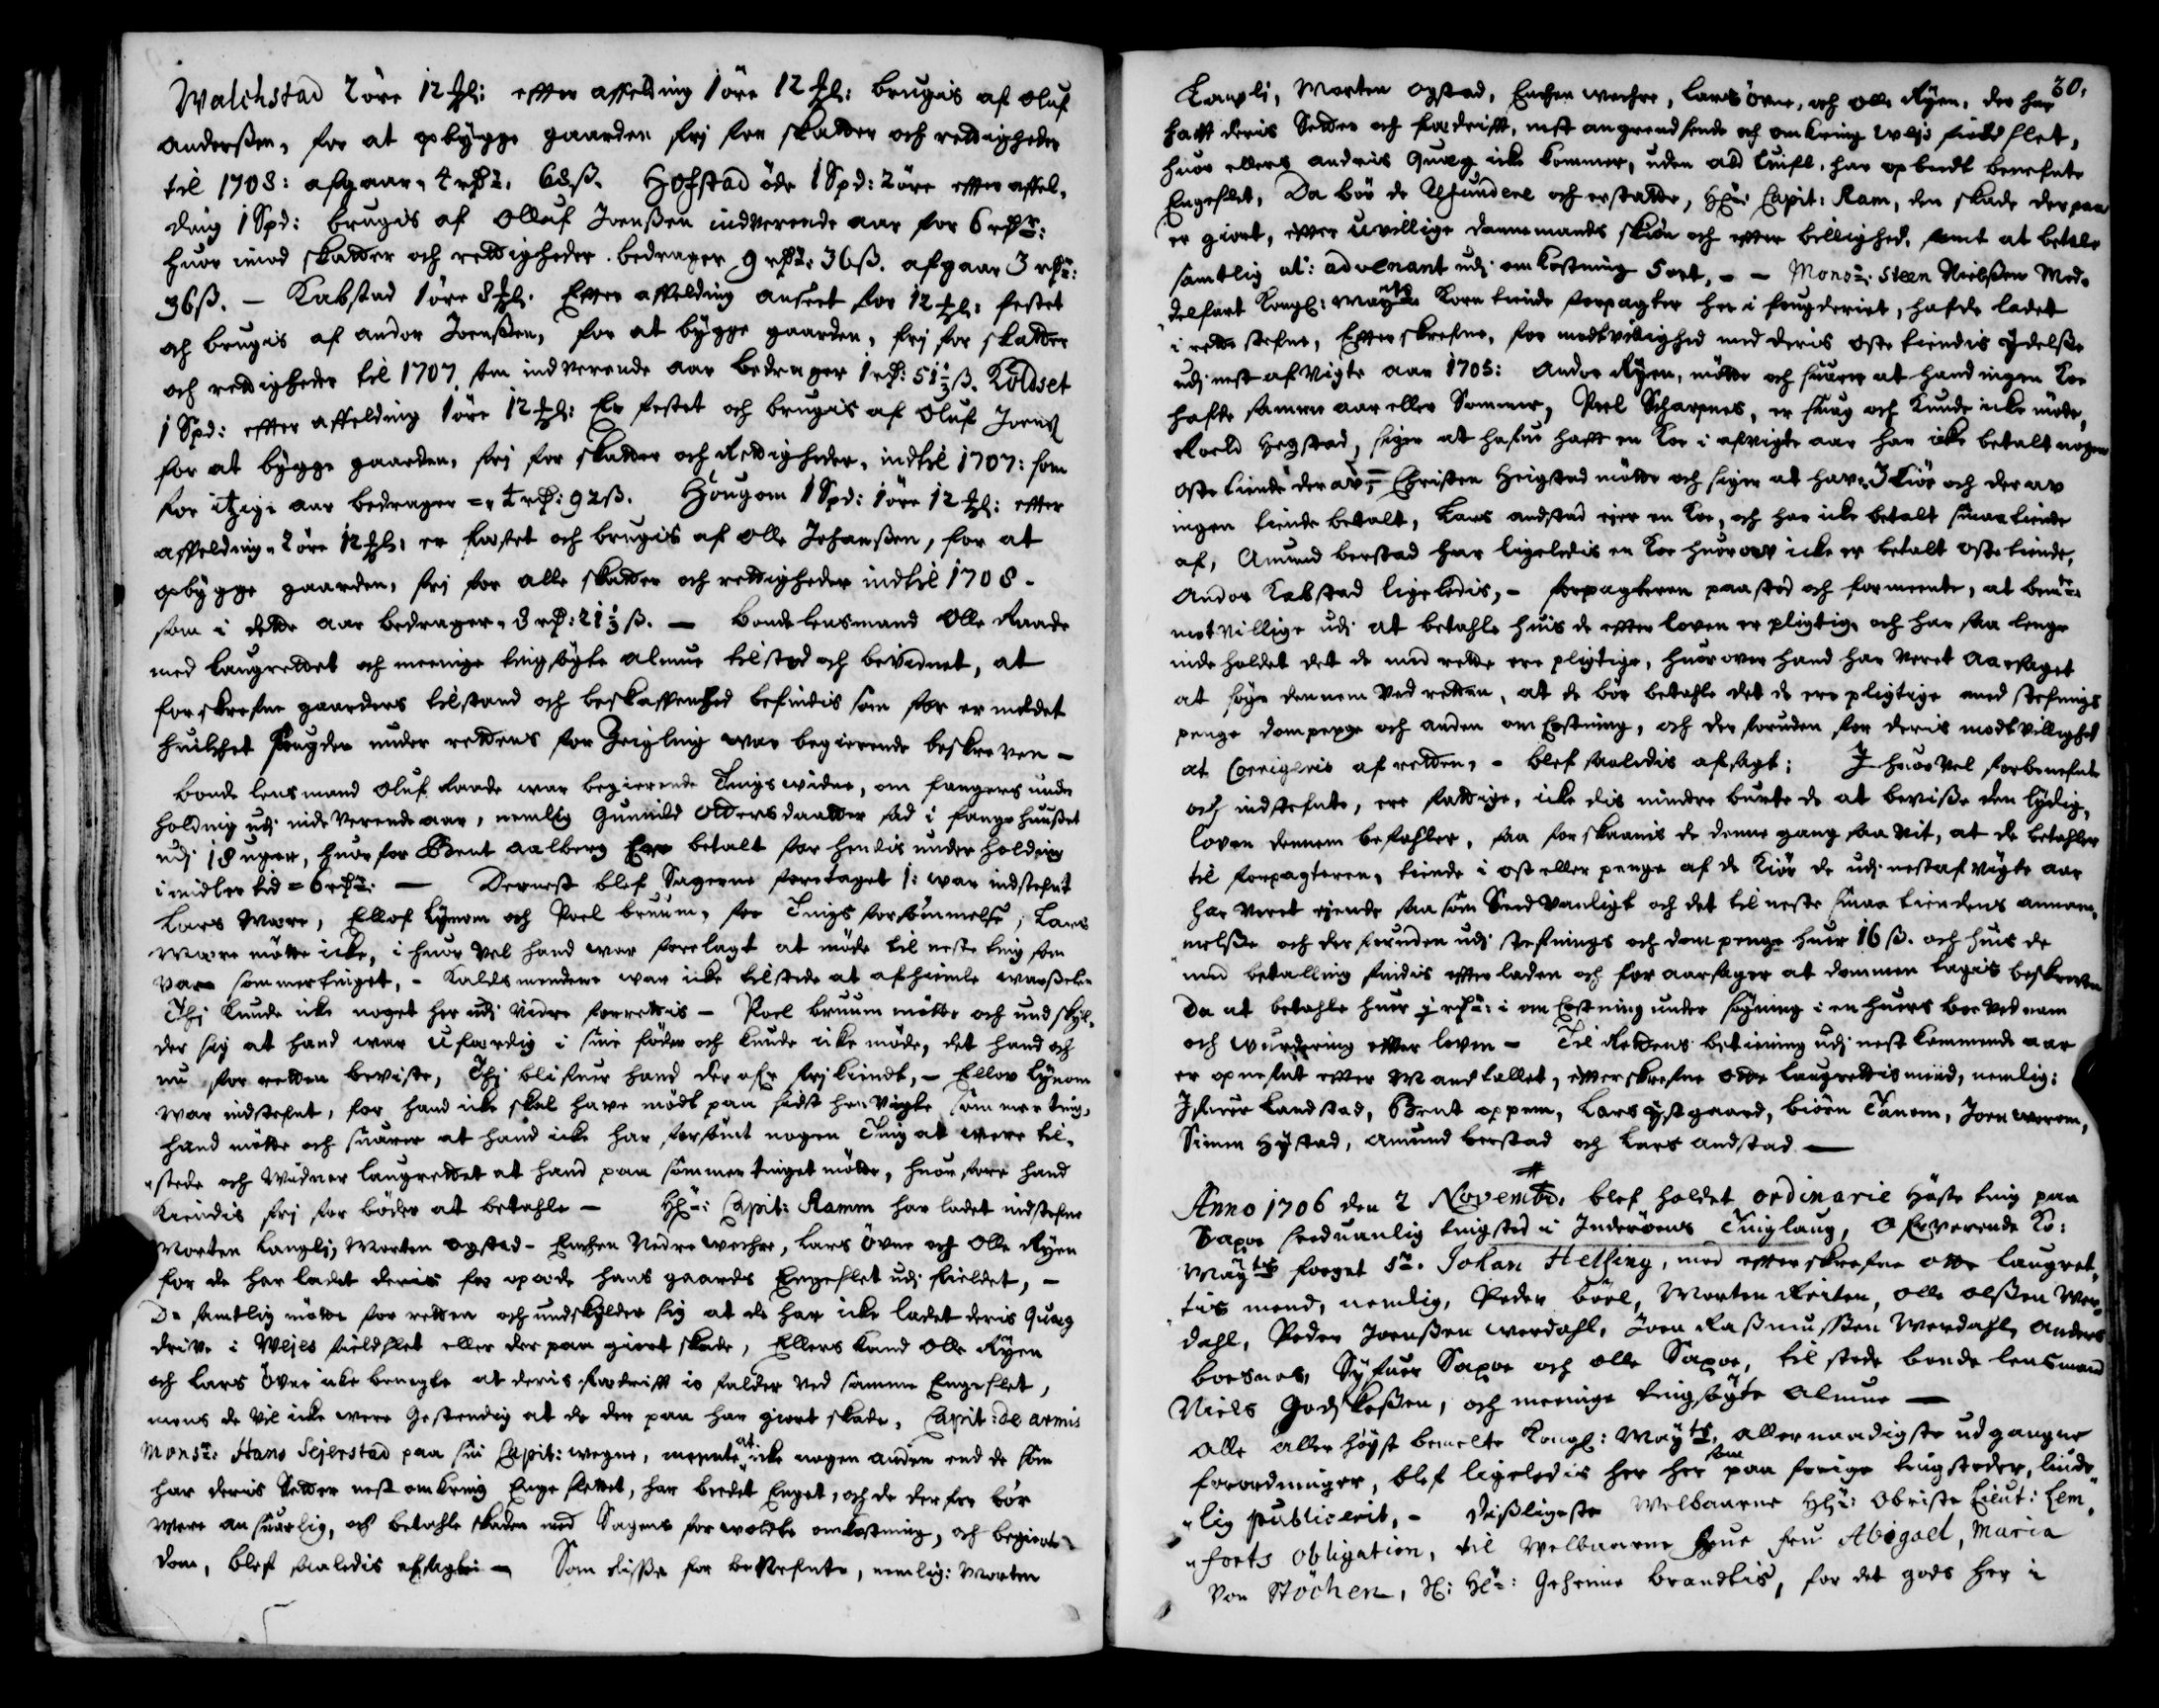 Walchstad 2 öre 12 ₰l: effter affelding 1 öre 12 ₰l: brugis af oluf
Anderßen, for at opbygge gaarden frj for skatter och rettigheder
til 1708: afgaar, 4 rdr. 68 ß. Hofstad öde 1 Spd: 2 öre effter affel,
ding 1 Spd: brugis af Olluf Joenßen indverende aar for 6 rdr:
huor imod skatter och rettigheder bedrager 9 rdr: 36 ß. afgaar 3 rdr:
36 ß. – Kabstad 1 öre 8 ₰l. Effter affelding anseet for 12 ₰l: festet
och brugis af andor Joenßen, for at bygge gaarden, frj for skatter
och rettigheder til 1707. som indverende aar bedrager 1 rd: 51½ ß. Köldset
1 Spd: effter affelding 1 öre 12 ₰l: Er festet och brugis af Oluf Joenß
for at bygge gaarden, frj for skatter och Rettigheder, indtil 1707: som
for itzige aar bedrager =, 4 rd: 92 ß. Hougom 1 Spd: 1 öre 12 ₰l: effter
affelding, 2 öre 12 ₰l: er festet och brugis af Olle Johanßen, for at
opbygge gaarden, frj for alle skatter och rettigheder indtil 1708.
som i dette aar bedrager, 3 rd: 21½ ß. – Bonde lensmand Olle Raade
med laugrettet och meenige tingsögte almue tilstod och bevidnet, at
forskrefne gaarders tilstand och beskaffenhed befindis som for er meldet
huilchet fougden under rettens for Zeigling war begierende beskreven –
Bonde lensmand Oluf Raade war begierende Tingswidne, om fangers under
holding udj inde verende aar, nemlig Gunnild Ottersdaatter sad i fangehuußet
udj 18 uger, huor for Bent Aalberg Eer betalt for hendis under holding
imidler tid = 6 rdr: – Dernest blef Sagerne foretaget 1: war indstefnt
Lars Ware, Ellof Lynom och Poel bruum, for Tings forsömmelse, Lars
Ware mötte icke, i huor vel hand war forelagt at möde til neste ting som
var sommertinget, – Kaldsmendene war icke tilstede at afhiemle warßelen
Thj kunde icke noget her udj videre forrettis – Poel bruum mötte och undskyl,
der sig at hand war ufærdig i sine föder och kunde icke möde, det hand och
nu for retten beviste, Thj blifuer hand der afr frj kiendt, – Ellov Lynom
war indstefnt, for hand icke skal have mödt paa sidst hen vigte sommerting,
hand mötte och suarer at hand icke har forsömt nogen Ting at were til,
stede och Widner laugrettet at hand paa sommertinget mötte, huor fore hand
kiendis frj for böder at betahle – Hr: Capit: Ramm har ladet indstefne
Morten Langli, Morten ogstad – Enchen Nedre wechre, Lars Övne och Olle Ryen
for de har ladet deris fæ opæde hans gaards Engeslet udj fieldet, –
De samtlig mötte for retten och undskylder sig at de har icke ladet deris Quæg
drive i Wejes fieldslet eller der paa giort skade, Ellers kand Olle Ryen
och Lars Övne icke benegte at deris fædrifft io falder ved samme Engeslet,
mens de vil icke were Gestendig at de der paa har giort skade, Capit: de armis
Monsr: Hans Sejerstad paa sin Capit: wegne, meente at icke nogen anden end de som
har deris Setter nest omkring Enge slettet, har beedet Enget, och de derfor bör
were ansuarlig, och betahle skaden med Sagens forvoldte omkostning, och begierte
dom, blef saaledis afsagt: – Som disse for benefnte, nemlig: Morten
30,
Langli, Morten Ogstad, Enchen wechre, Lars Övne, och Olle Ryen, der har
hafft deris Setter och fædrifft, nest angrendsende och omkring Wejes fieldslet,
huor ellers andris Quæg icke kommer, uden ald tuifl, har opbeedt benefnte
Engeslet, Da bör de Refundere och erstatte, Hr: Capit: Ram, den skade der paa
er giort, effter Uvillige dannemands skiön och effter billighed, samt at betale
samtlig at: advenant udj omkostning 5 ort, – – Monsr: Steen Nielßen Med,
delfart Kongl: Mayts Korn tiende forpagter her i fougderiet, hafde ladet
i rette stefne, Effterskrefne, for modtvillighed med deris oste tiendis Ydelße
udj nest afvigte aar 1705: Andor Ryen, mötte och suarer at hand ingen Koe
hafde samme aar eller Sommer, Poel Scharpnes, er siug och kunde icke möde,
Roeld Hegstad, siger at hafue hafft en Koe i afvigte aar har icke betalt nogen
oste tiende der av, – Christen Heigstad mötte och siger at have 3 Kiör och der av
ingen tiende betalt, Lars andstad ejer en Koe, och har icke betalt smaa tiende
af, Amund berstad har ligeledis en Koe huor av icke er betalt oste tiende,
Andor Kabstad ligeledis, – forpagteren paastod och formeente, at bemte
motvillige udj at betahle huis de effter loven er pligtig, och har saa lenge
inde holdet det de med rette ere pligtige, huor over hand har veret aarsaget
at söge dennem ved retten, at de bör betahle det de ere pligtige med stefnings
penge dompenge och anden omkostning, och der foruden for deris modtvillighed
at Corrigeris af retten, – blef saaledis afsagt: I huor vel forbenefnte
och indstefnte, ere fattige, icke dis mindre burte de at beviße den lydig,
loven dennem befahler, saa forskaanis de denne gang saa vit, at de betahler
til forpagteren, tiende i ost eller penge af de Kiör de udj nest afvigte aar
har veret ejende saa som Sædvanligt och det til neste smaa tiendens annam,
melße och der foruden udj stefnings och dompenge huer 16 ß. och huis de
med betalling findis effterladen och foraarsager at dommen tagis beskreven
da at betahle huer ½ rdr: i omkostning under söyning i en huers boe ved nam
och wurdering effter loven – Til Rettens betiening udj nest kommende aar
er opnefnt effter Mandtallet, effterskrefne otte laugrettismend, nemlig:
Ifuer Landstad, Bent oppem, Lars Østgaard, biörn Tanem, Joen werem,
Simen Hystad, Amund berstad och Lars andstad –
Anno 1706 den 2 Novembr. blef holdet ordinarie Höste ting paa
Saxoe sædvanlig tingsted i Inderöens Tinglaug, Ofververende Ko:
Mayts foeget Sr. Johan Helsing, med effterskrefne otte laugret,
tis mend, nemlig, Peder böel, Morten Reiten, Olle Olßen Wer,
dahl, Peder Joenßen werdahl, Joen Raßmusßen Werdahl, Anders
boesnes, Syfuer Saxoe och Olle Saxoe, til stede bonde lensmand
Niels Godskeßen, och meenige tingsögte Almue –
Alle aller höyst bemelte Kongl: Mayts. allernaadigste udgangne
forordninger, blef ligeledis her som paa forige tingsteder, liude,
lig publicerit, – dißligeste Welbaarne Hr: Obriste Lieut: Elm,
forts Obligation, til Welbaarne Frue Fru Abigael, Maria
von Stöchen, Sl: Hr: Geheime brandtis, for det gods her i